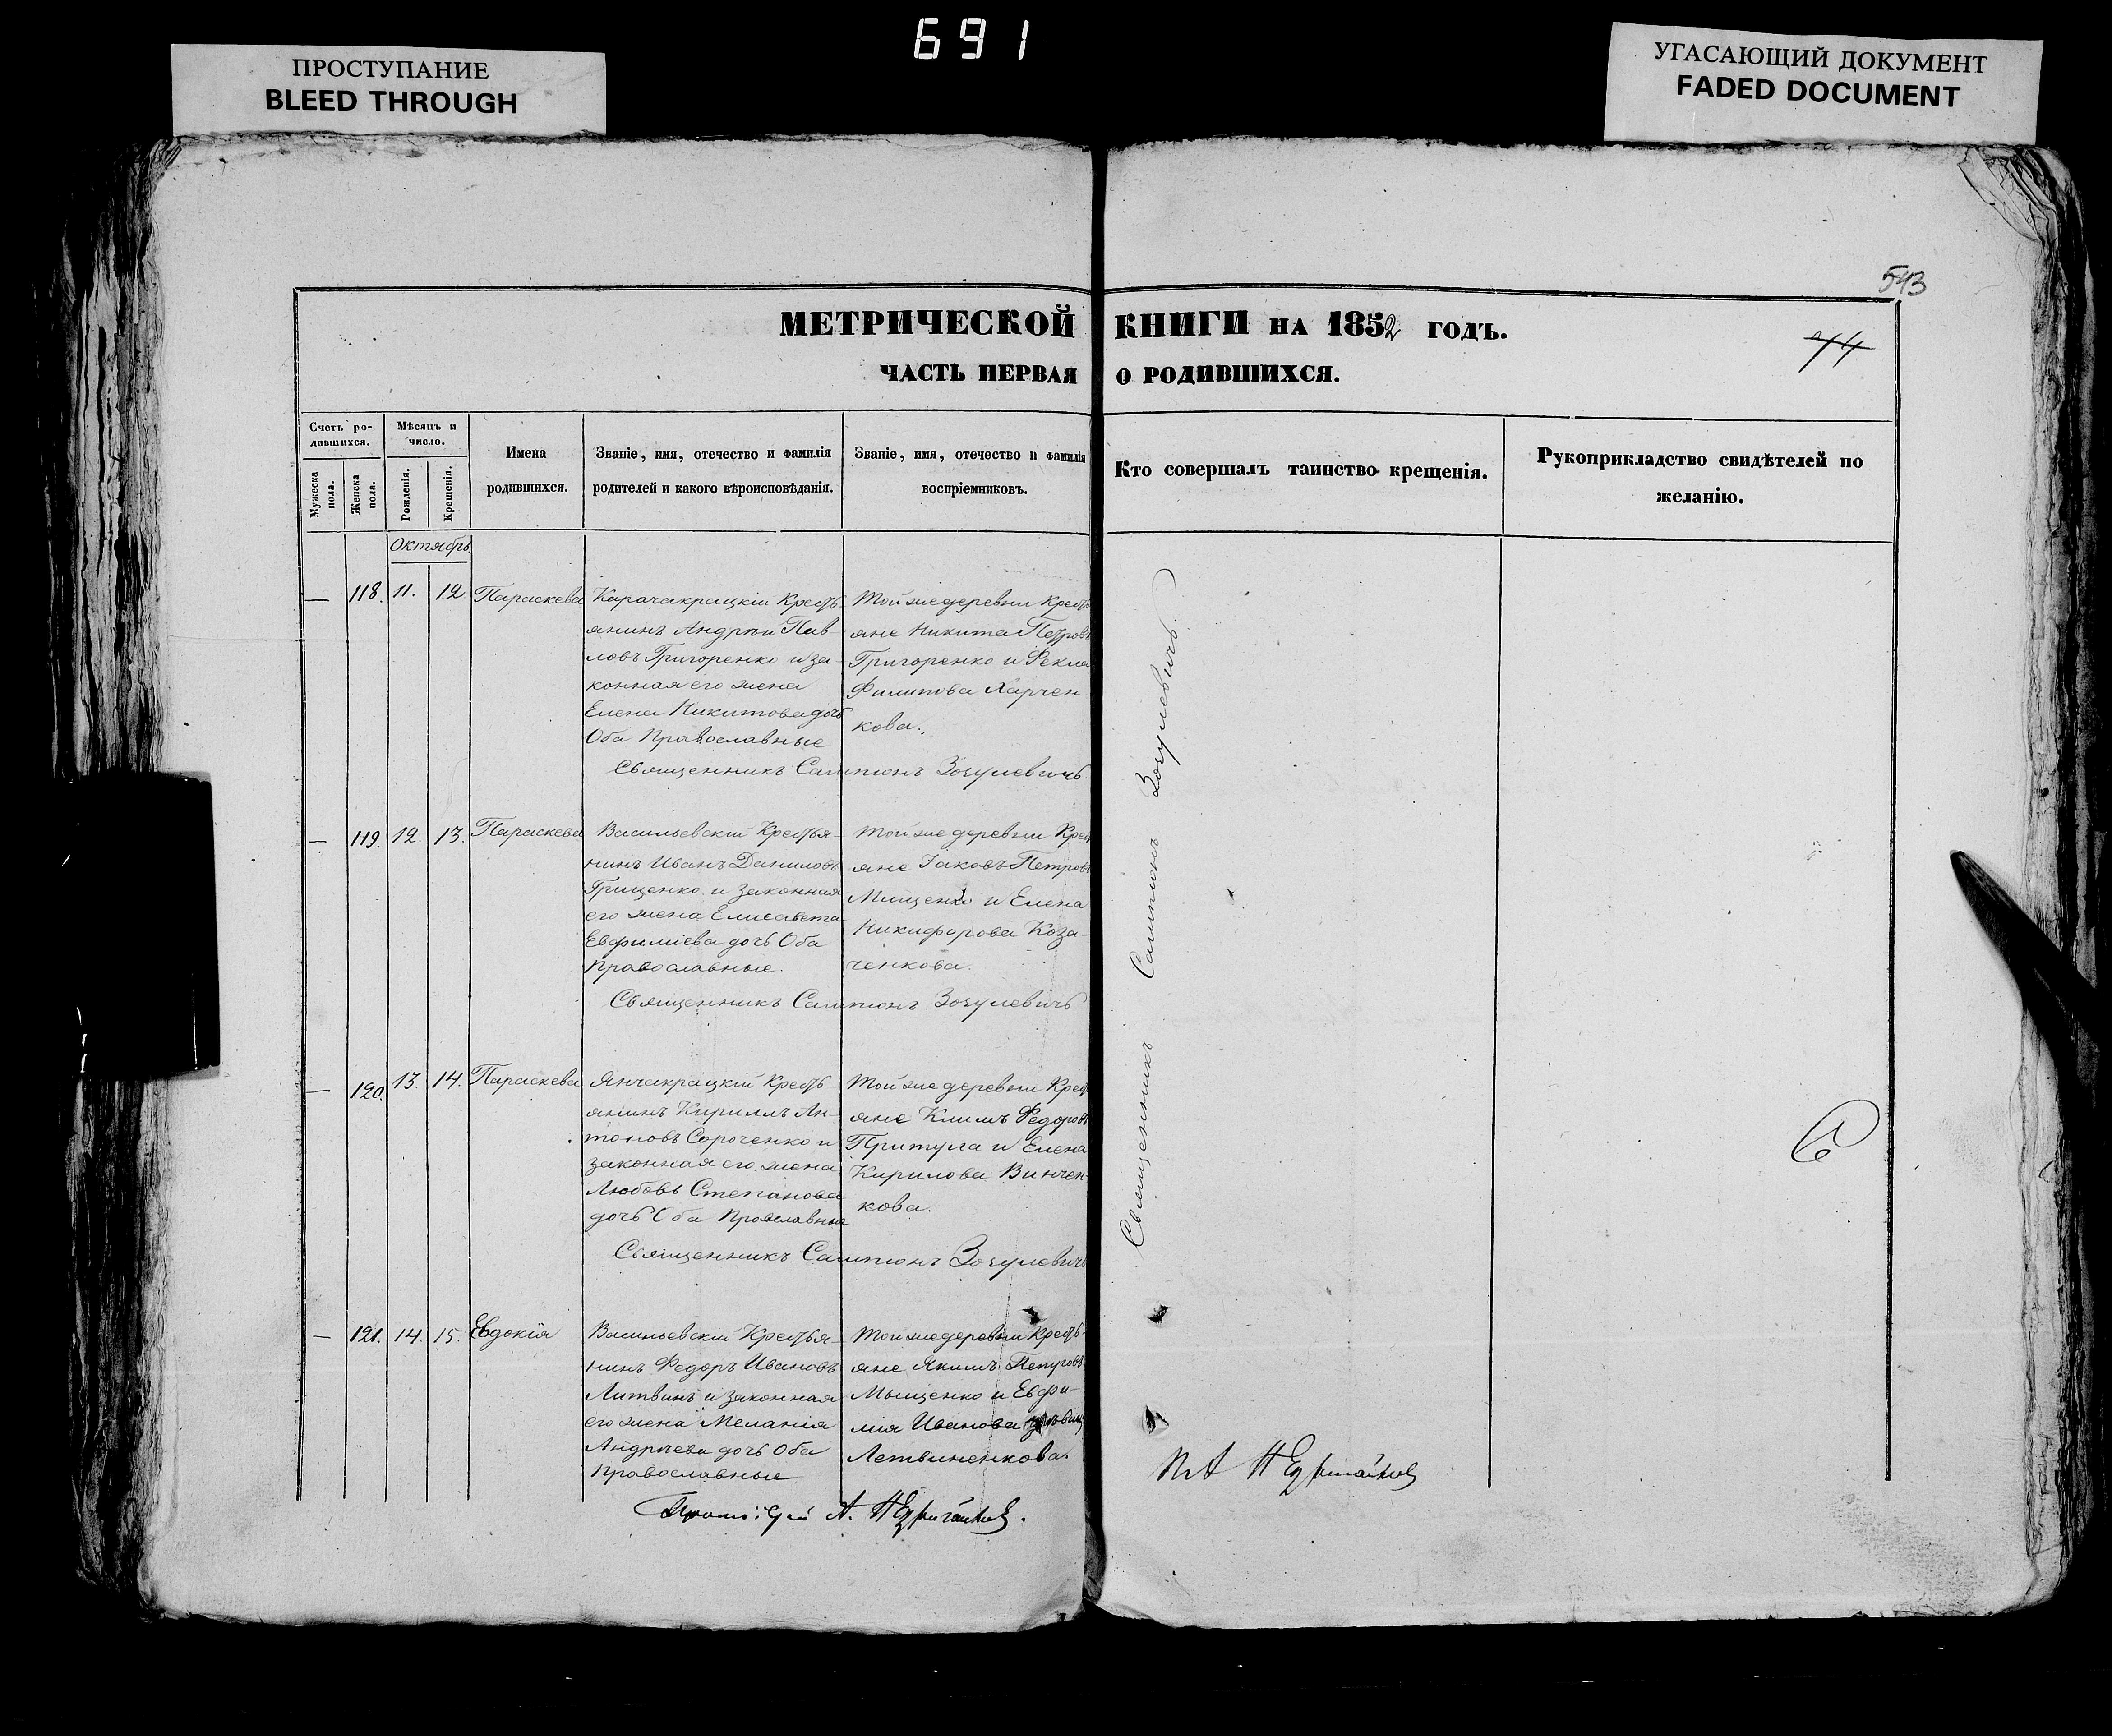 691
ПРОСТУПАНИЕ
BLEED THROUGH
УГАСАЮЩИЙ ДОКУМЕНТ
FADED DOCUMENT
543
МЕТРИЧЕСКОЙ КНИГИ НА 1852 ГОДЪ.
44
ЧАСТЬ ПЕРВАЯ О РОДИВШИХСЯ.
Счетъ ро-
дившихся.
Мужеска пола.
Женска пола.
Мѣсяцъ и
число.
Рожденія.
Крещенія.
Имена
родившихся.
Званіе, имя, отечество и фамилія
родителей и какого вѣроисповѣданія.
Званіе, имя, отечество и фамилія
воспріемниковъ.
Кто совершалъ таинство крещенія.
Рукоприкладство свидѣтелей по
желанію.
Октябрь.
— 118. 11. 12 Параскева
Карачакрацкій Кресть-
янинъ Андрѣй Пав-
ловъ Григоренко и за-
конная его жена
Елена Никитова дочь
Оба Православные
Той же деревни Кресть
яне Никита Петровъ
Григоренко и Фекла
Филипова Харчен
кова.
Священникъ Сампсонъ Зозулевичъ.
— 119. 12. 13. Параскева
Васильевскій Крестья-
нинъ Иванъ Даниловъ
Грищенко и законная
его жена Елисавета
Евфиміева дочь Оба
Православные.
Той же деревни Крест
яне Іаковъ Петровъ
Мищенко и Елена
Никифорова Коза-
ченкова.
Священникъ Сампсонъ Зозулевичъ
— 120. 13. 14. Параскева
Янчакрацкій Кресть-
янинъ Кириллъ Ан-
тоновъ Сороченко и
законная его жена
Любовь Степанова
дочь Оба Православныя
Той же деревни Крест
яне Климъ Федоровъ
Притула и Елена
Кирилова Винчен-
кова.
Священникъ Сампсонъ Зозулевичъ
— 121. 14. 15. Евдокія
Васильевскій Крестья-
нинъ Федоръ Ивановъ
Литвинъ и законная
его жена Меланія
Андрѣева дочь Оба
Православные
Той же деревни Кресть-
яне Якимъ Петровъ
Мыщенко и Евфи-
мія Иванова
Летвиненкова.
Священникъ Сампсонъ Зозулевичъ.